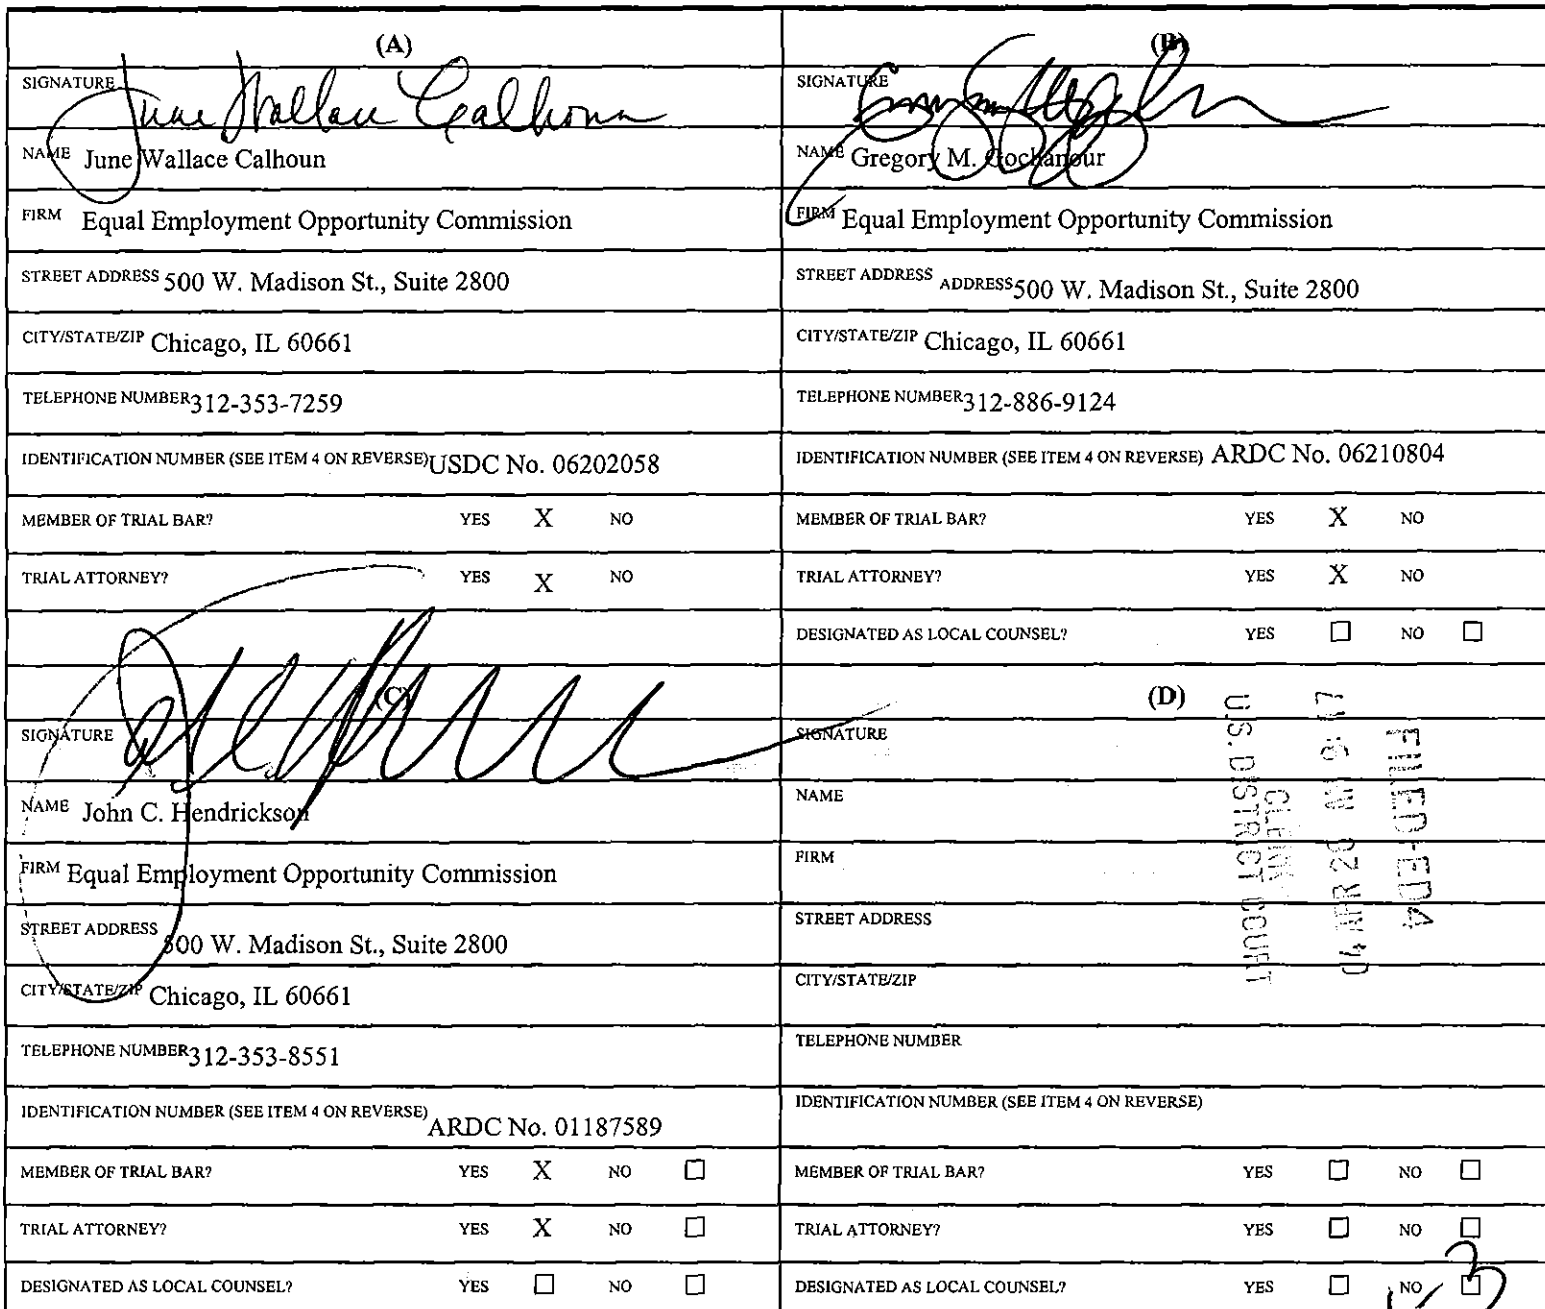 (A)
SIGNATURE June Wallace Calhoun
NAME June Wallace Calhoun
FIRM Equal Employment Opportunity Commission
STREET ADDRESS 500 W. Madison St., Suite 2800
CITY/STATE/ZIP Chicago, IL 60661
TELEPHONE NUMBER 312-353-7259
IDENTIFICATION NUMBER (SEE ITEM 4 ON REVERSE) USDC No. 06202058
MEMBER OF TRIAL BAR? YES X NO
TRIAL ATTORNEY? YES X NO
(B)
SIGNATURE
NAME Gregory M. Gochanour
FIRM Equal Employment Opportunity Commission
STREET ADDRESS ADDRESS 500 W. Madison St., Suite 2800
CITY/STATE/ZIP Chicago, IL 60661
TELEPHONE NUMBER 312-886-9124
IDENTIFICATION NUMBER (SEE ITEM 4 ON REVERSE) ARDC No. 06210804
MEMBER OF TRIAL BAR? YES X NO
TRIAL ATTORNEY? YES X NO
DESIGNATED AS LOCAL COUNSEL? YES ☐ NO ☐
(C)
SIGNATURE
NAME John C. Hendrickson
FIRM Equal Employment Opportunity Commission
STREET ADDRESS 500 W. Madison St., Suite 2800
CITY/STATE/ZIP Chicago, IL 60661
TELEPHONE NUMBER 312-353-8551
IDENTIFICATION NUMBER (SEE ITEM 4 ON REVERSE) ARDC No. 01187589
MEMBER OF TRIAL BAR? YES X NO ☐
TRIAL ATTORNEY? YES X NO ☐
DESIGNATED AS LOCAL COUNSEL? YES ☐ NO ☐
(D)
SIGNATURE
NAME
FIRM
STREET ADDRESS
CITY/STATE/ZIP
TELEPHONE NUMBER
IDENTIFICATION NUMBER (SEE ITEM 4 ON REVERSE)
MEMBER OF TRIAL BAR? YES ☐ NO ☐
TRIAL ATTORNEY? YES ☐ NO ☐
DESIGNATED AS LOCAL COUNSEL? YES ☐ NO ☐
FILED-ED4
CLERK
U.S. DISTRICT COURT